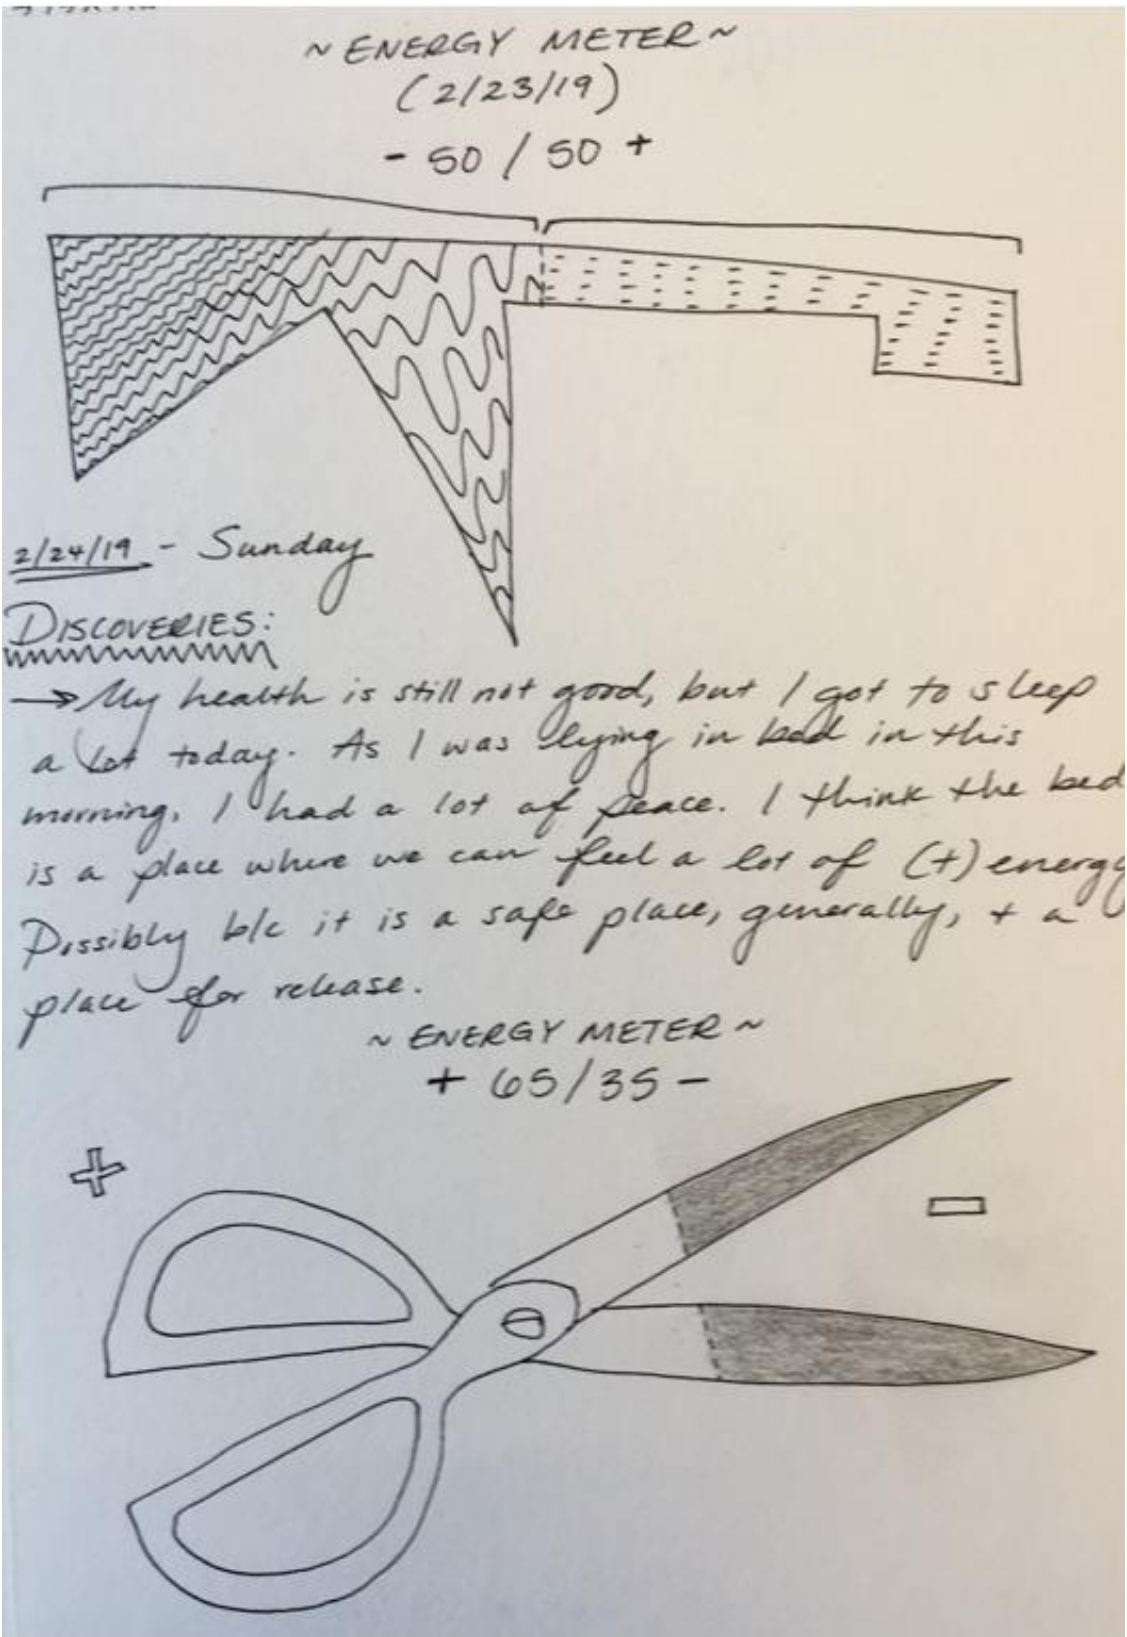 ~ ENERGY METER ~
(2/23/19)
- 50 / 50 +
2/24/19 - Sunday
DISCOVERIES:
→ My health is still not good, but I got to sleep
a lot today. As I was lying in bed in this
morning, I had a lot of peace. I think the bed
is a place where we can feel a lot of (+) energy
Possibly b/c it is a safe place, generally, + a
place for release.
~ ENERGY METER ~
+ 65/35 -
+
-